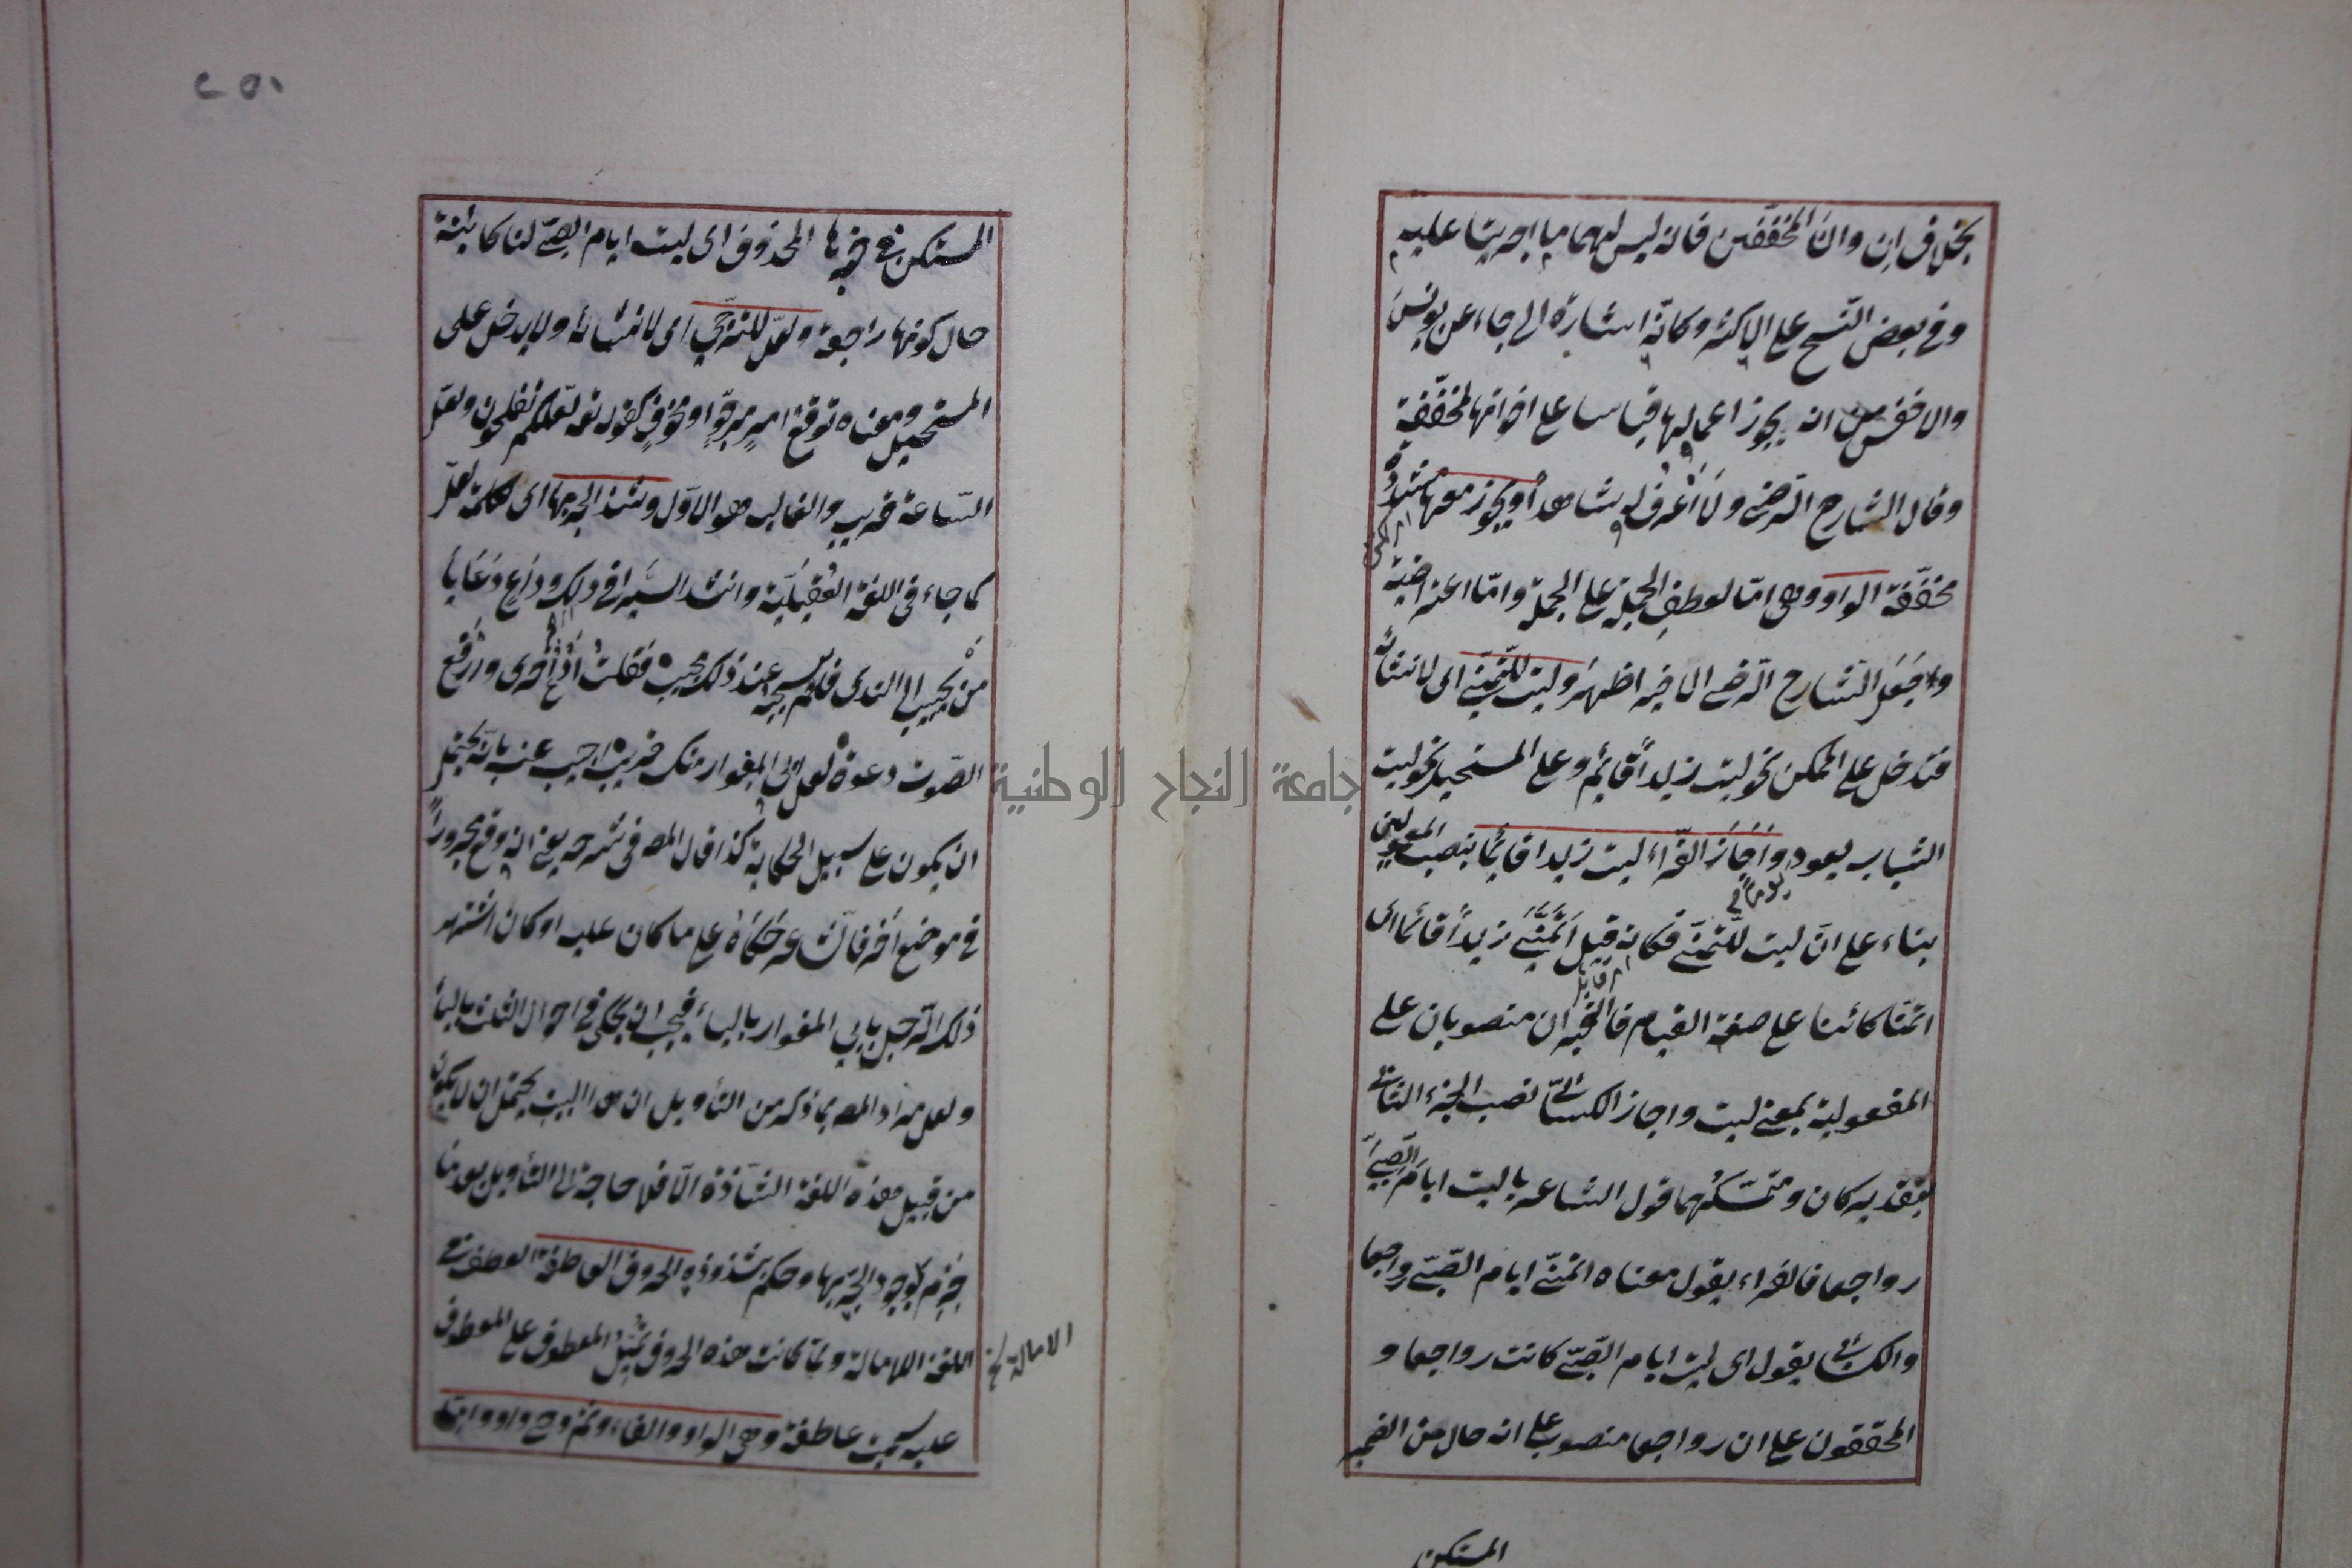 بخلاف ان وان المخففتين فانه ليس لهما ما اجريتا عليه
وفي بعض النسخ على الاكثر وكانه اشارة الى جاء عن يونس
والاخفش من انه يجوز اعمالها قياسا على اخواتها المخففة
وقال الشارح الرضي ولا اعرف به شاهدا ويجوز معها مشددة
مخففة الواو وهي اما لعطف الجملة على الجملة واما اعتراضية
وجعل الشارح الرضي الاخير اظهر وليت للتمني اى لانشائه
فتدخل على الممكن نحو ليت زيدا قائم وعلى المستحيل نحو ليت
الشباب يعود واجاز الفراء ليت زيدا قائما بنصب المعمولين
بناء على ان ليت للتمني فكانه قيل اتمنى زيدا قائما اى
اتمناه كائنا على صفة القيام فالجزءان منصوبان على
المفعولية بمعنى ليت واجاز الكسائي نصب الجزء الثاني
بتقدير كان ومتمسكهما قول الشاعر يا ليت ايام الصبى
رواجعا فالفراء يقول معناه اتمنى ايام الصبي رواجعا
والكسائي يقول اى ليت ايام الصبي كانت رواجعا و
المحققون على ان رواجعا منصوب على انه حال من الضمير
المستكن
٢٥٠
المستكن في خبرها المحذوف اى ليت ايام الصبي لنا كائنة
حال كونها راجعة ولعل للترجي اى لانشائه ولا يدخل على
المستحيل ومعناه توقع امر مرجو او مخوف كقوله تع لعلكم تفلحون ولعل
الساعة قريب والغالب هو الاول وشذ الجر بها اى بكلمة لعل
كما جاء في اللغة العقيلية وانشد السيرافي في ذلك وداع دعا يا
من يجيب الى الندى فلم يستجبه عند ذلك مجيب فقلت ادع اخرى وارفع
الصوت دعوة لعل ابي المغوار منك قريب اجيب عنه بانه يحتمل
ان يكون على سبيل الحكاية كذا قال المصـ في شرحه يعنى انه وقع مجرورا
في موضع اخر فالشاعر حكاه على ما كان عليه او كان اشتهر
ذلك الرجل بابي المغوار بالياء فيجب ان يحكى في احوال الثلث بالياء
ولعل مراد المصـ بما ذكره من التأويل ان هذا البيت يحتمل ان لا يكون
من قبيل هذه اللغة الشاذة الا فلا حاجة الى التأويل بعد ما
جزم بوجود الجر بها وحكم بشذوذه الحروف العاطفة العطف في
اللغة الامالة ولما كانت هذه الحروف تميل المعطوف على المعطوف
الامالة نخ
عليه سميت عاطفة وهي الواو والفاء وثم وحتى واو واما
جامعة النجاح الوطنية